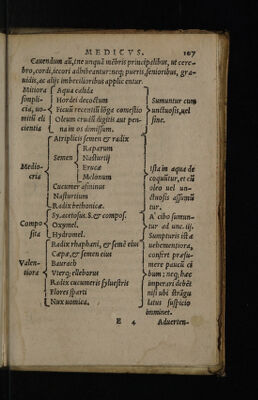 MEDICVS. 107
Cauendum aũ, ne unquã mẽbris principalibus, ut cere-
bro, cordi, iecori adhibeantur: neq; pueris, senioribus, gra-
uidis, ac alijs imbecilioribus applicentur.
Mitiora
simpli-
cia, uo-
mitũ eli
cientia
Aqua calida
Hordei decoctum
Ficuũ recentiũ lõga comestio
Oleum crudũ digitis aut pen-
na in os dimissum.
Sumuntur cum
unctuosis, uel
sine.
Medio-
cria
Atriplicis semen & radix
Semen
Raparum
Nasturtij
Erucæ
Melonum
Cucumer asininus
Nasturtium
Radix bethonicæ.
Ista in aqua de
coquũtur, et cũ
oleo uel un-
ctuosis assumũ
tur.
Compo
sita
Sy. acetosus. S. & compos.
Oxymel.
Hydromel.
A' cibo sumun-
tur ad unc. iij.
Valen-
tiora
Radix rhaphani, & semẽ eius
Cæpæ, & semen eius
Baurach
Vterq; elleborus
Radix cucumeris syluestris
Flores sparti
Nux uomica.
Sumpturis istæ
uehementiora,
confert præsu-
mere paucũ ci
bum: neq; hæc
imperari debẽt
nisi ubi strãgu
latus suspicio
imminet.
E 4 Aduerten-